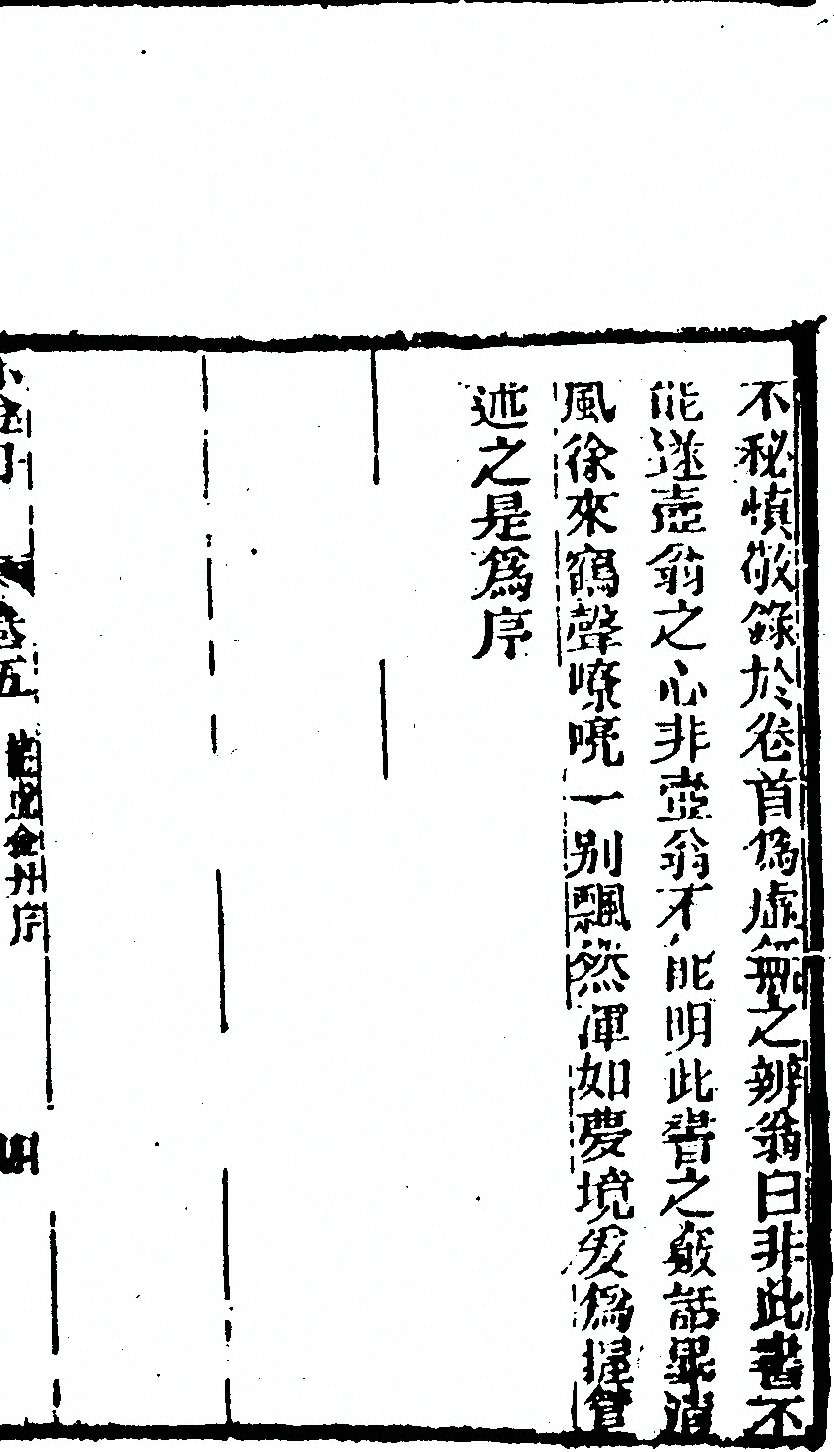 不秘慎敬錄於卷首爲虛無之辨翁曰非此書不
能遂壺翁之心非壺翁不能明此書之竅話畢清
風徐來鶴聲嘹喨一別飄然渾如夢境爰爲握管
述之是爲序
卷五
金丹序